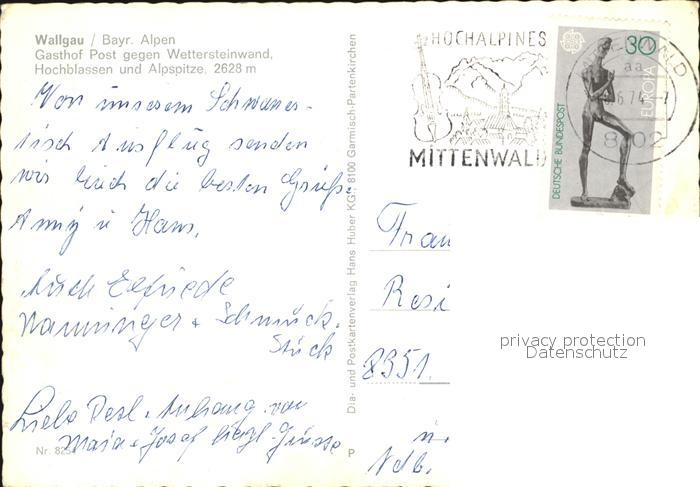 Wallgau / Bayr. Alpen
Gasthof Post gegen Wettersteinwand,
Hochblassen und Alpspitze, 2628 m
Von unserem
Ausflug senden
wir Euch die besten Grüße
Anny u Hans.
Auch Elfriede
Schmuck.
Stück
Anhang von
Maria + Josef
Nr. 825
P
Dia- und Postkartenverlag Hans Huber KG., 8100 Garmisch-Partenkirchen
HOCHALPINES
MITTENWALD
DEUTSCHE BUNDESPOST
30
EUROPA
aa
6.74-7
8102
Frau
Resi
8351
Ndb.
privacy protection
Datenschutz